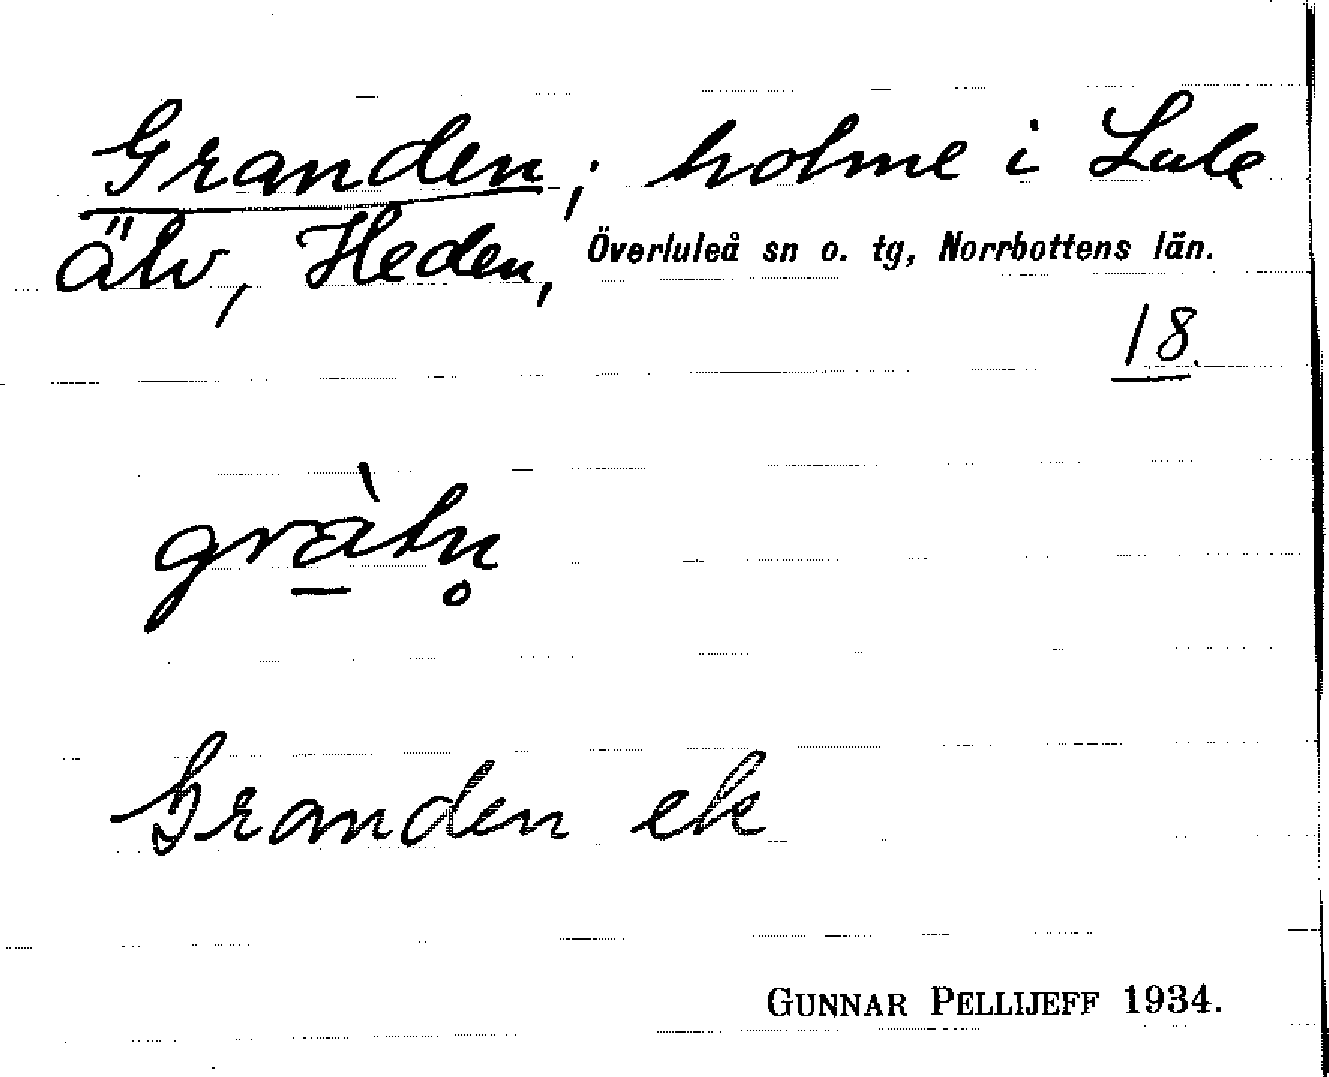 Granden; holme i Lule
älv, Heden, Överluleå sn o. tg, Norrbottens län.
18.
grà̱tn̥
Granden ek
GUNNAR PELLIJEFF 1934.